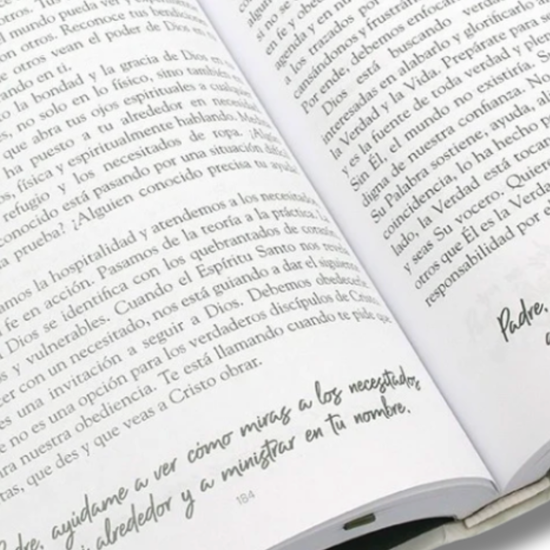 mundo pueda ver y
n otros. Reconoce tus bendiciones
otros vean el poder de Dios en
ndo en ti.
o la bondad y la gracia de Dios en
s, no solo en lo físico, sino también
que abra tus ojos espirituales a cualquier
ha puesto a tu alrededor en necesidad
os, física y espiritualmente hablando.
refugio y los necesitados de ropa. ¿Algún
conocido está pasando por una situación difícil
a prueba? ¿Alguien conocido precisa tu ayuda
amos la hospitalidad y atendemos a los necesitados
a fe en acción. Pasamos de la teoría a la práctica. La
Dios se identifica con los quebrantados de corazón
s y vulnerables. Cuando el Espíritu Santo nos revela
cer con un necesitado, nos está guiando a dar el siguiente
es una invitación a seguir a Dios. Debemos obedecerla
e no es una opción para los verdaderos discípulos de Cristo.
ra nuestra obediencia. Te está llamando cuando te pide que
tas, que des y que veas a Cristo obrar.
Padre, ayúdame a ver cómo miras a los necesitados
mi alrededor y a ministrar en tu nombre.
184
si no se
obvio
agenda y en nu
a los trazados por
cansándonos y frustrán
Por ende, debemos enfocar
Dios está buscando verdad
interesadas en alabarlo y glorificarlo a
la Verdad y la Vida. Prepárate para se
y es la fuente de toda verdad y plen
Sin Él, el mundo no existiría. S
digna de nuestra confianza. No
Su Palabra sostiene, ayuda, al
coincidencia, lo ha hecho p
lado, la Verdad está tocan
y seas Su vocero. Quien
otros que Él es la Verda
responsabilidad por
Padre,
a